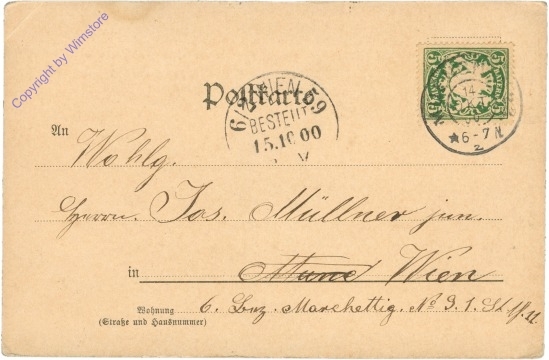 Copyright by Wimstore
Postkarte
6/1 WIEN 59
BESTELLT
15.10.00
V
5 BAYERN 5
14
★6-7N
2
An
Wohlg.
Herrn Jos. Müllner jun.
in Wien
Wohnung
(Straße und Hausnummer)
6. Bez. Marchettig. No 9. 1. St. Th. 11.